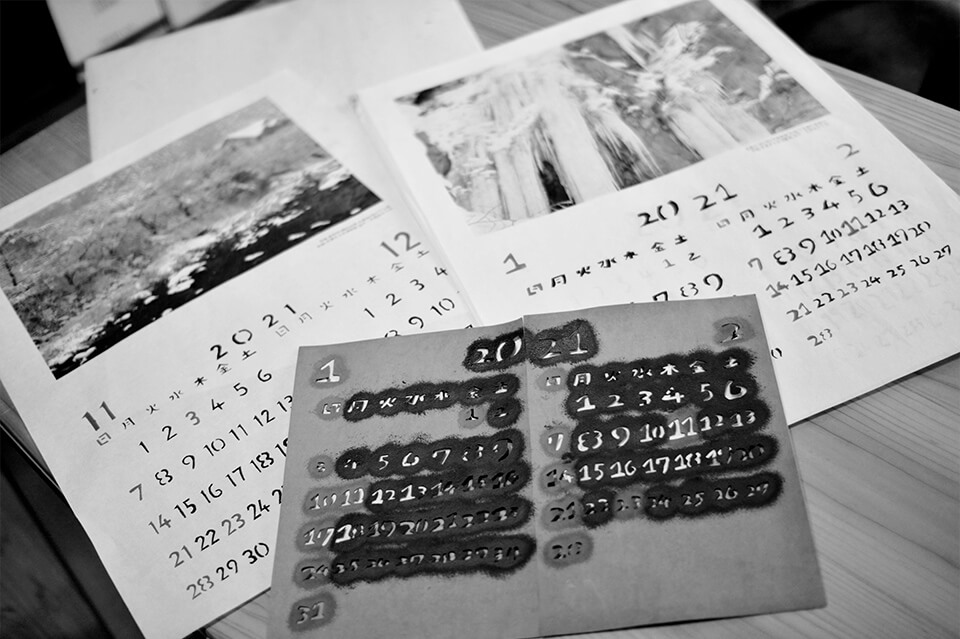 11 20 21 12
日 月 火 水 木 金 土
1 2 3 4 5 6
7 8 9 10 11 12 13
14 15 16 17 18
21 22 23 24
28 29 30
日 月 火 水 木 金 土
1 2 3 4
9 10
1 20 21 2
日 月 火 水 木 金 土
1 2
7 8 9
日 月 火 水 木 金 土
1 2 3 4 5 6
7 8 9 10 11 12 13
14 15 16 17 18 19 20
21 22 23 24 25 26 27
28
1 20 21 2
日 月 火 水 木 金 土
1 2
3 4 5 6 7 8 9
10 11 12 13 14 15 16
17 18 19 20 21 22 23
24 25 26 27 28 29 30
31
日 月 火 水 木 金 土
1 2 3 4 5 6
7 8 9 10 11 12 13
14 15 16 17 18 19 20
21 22 23 24 25 26 27
28